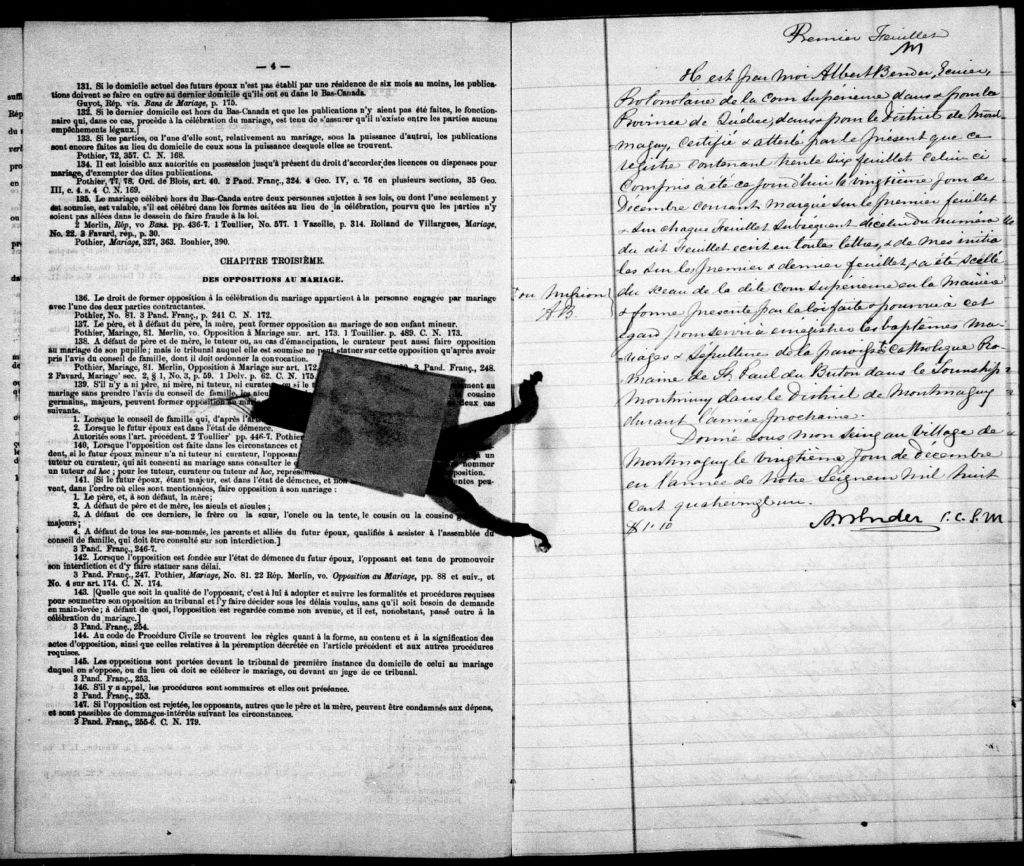 — 4 —
131. Si le domicile actuel des futurs époux n'est pas établi par une résidence de six mois au moins, les publica-
tions doivent se faire en outre au dernier domicile qu'ils ont eu dans le Bas-Canada.
Guyot, Rép. vis. Bans de Mariage, p. 175.
132. Si le dernier domicile est hors du Bas-Canada et que les publications n'y aient pas été faites, le fonction-
naire qui, dans ce cas, procède à la célébration du mariage, est tenu de s'assurer qu'il n'existe entre les parties aucuns
empêchements légaux.]
133. Si les parties, ou l'une d'elle sont, relativement au mariage, sous la puissance d'autrui, les publications
sont encore faites au lieu du domicile de ceux sous la puissance desquels elles se trouvent.
Pothier, 72, 357. C. N. 168.
134. Il est loisible aux autorités en possession jusqu'à présent du droit d'accorder des licences ou dispenses pour
mariage, d'exempter des dites publications.
Pothier, 77, 78. Ord. de Blois, art. 40. 2 Pand. Franç., 324. 4 Geo. IV, c. 76 en plusieurs sections, 35 Geo.
III, c. 4. s. 4 C. N. 169.
135. Le mariage célébré hors du Bas-Canda entre deux personnes sujettes à ses lois, ou dont l'une seulement y
est soumise, est valable, s'il est célébré dans les formes usitées au lieu de la célébration, pourvu que les parties n'y
soient pas allées dans le dessein de faire fraude à la loi.
2 Merlin, Rép, vo Bans. pp. 436-7. 1 Toullier, No. 577. 1 Vazeille, p. 314. Rolland de Villargues, Mariage,
No. 22. 3 Favard, rép., p. 30.
Pothier, Mariage, 327, 363. Bouhier, 390.
CHAPITRE TROISIÈME.
DES OPPOSITIONS AU MARIAGE.
136. Le droit de former opposition à la célébration du mariage appartient à la personne engagée par mariage
avec l'une des deux parties contractantes.
Pothier, No. 81. 3 Pand. Franç., p. 241 C. N. 172.
137. Le père, et à défaut du père, la mère, peut former opposition au mariage de son enfant mineur.
Pothier, Mariage, 81. Merlin, vo. Opposition à Mariage sur. art. 173. 1 Touillier. p. 489. C. N. 173.
138. A défaut de père et de mère, le tuteur ou, au cas d'émancipation, le curateur peut aussi faire opposition
au mariage de son pupille; mais le tribunal auquel elle est soumise ne peut statuer sur cette opposition qu'après avoir
pris l'avis du conseil de famille, dont il doit ordonner la convocation.
Pothier, Mariage, 81. Merlin, Opposition à Mariage sur art. 172. 3 Pand. Franç., 248.
2 Favard, Mariage sec. 2, § 1, No. 3, p. 59. 1 Delv. p. 62. C. N. 175
139. S'il n'y a ni père, ni mère, ni tuteur, ni curateur
mariage sans prendre l'avis du conseil de famille, les aieuls cousine
germains,, majeurs, peuvent former opposition au mariage deux cas
suivants.
1. Lorsque le conseil de famille qui, d'après l'art
2. Lorsque le futur époux est dans l'état de démence.
Autorités sous l'art. précédent. 2 Toullier pp. 446-7. Pothier
140. Lorsque l'opposition est faite dans les circonstances et
dent, si le futur époux mineur n'a ni tuteur ni curateur, l'opposant
tuteur ou curateur, qui ait consenti au mariage sans consulter le nommer
un tuteur ad hoc; pour les tuteur, curateur ou tuteur ad hoc, représenter opposition.
141. [Si le futur époux, étant majeur, est dans l'état de démence, et non
vent, dans l'ordre où elles sont mentionnées, faire opposition à son mariage:
1. Le père, et, à son défaut, la mère;
2. A défaut de père et de mère, les aieuls et aieules;
3. A défaut de ces derniers, le frère ou la sœur, l'oncle ou la tante, le cousin ou la cousine
majeurs;
4. A défaut de tous les sus-nommés, les parents et alliés du futur époux, qualifiés à assister à l'assemblée du
conseil de famille, qui doit être consulté sur son interdiction.]
3 Pand. Franç., 246-7.
142. Lorsque l'opposition est fondée sur l'état de démence du futur époux, l'opposant est tenu de promouvoir
son interdiction et d'y faire statuer sans délai.
3 Pand. Franç., 247. Pothier, Mariage, No. 81. 22 Rép. Merlin, vo. Opposition au Mariage, pp. 88 et suiv., et
No. 4 sur art. 174. C. N. 174.
143. [Quelle que soit la qualité de l'opposant, c'est à lui à adopter et suivre les formalités et procédures requises
pour soumettre son opposition au tribunal et l'y faire décider sous les délais voulus, sans qu'il soit besoin de demande
en main-levée; à défaut de quoi, l'opposition est regardée comme non avenue, et il est, nonobstant, passé outre à la
célébration du mariage.]
3 Pand. Franç., 254.
144. Au code de Procédure Civile se trouvent les règles quant à la forme, au contenu et à la signification des
actes d'opposition, ainsi que celles relatives à la péremption décrétée en l'article précédent et aux autres procédures
requises.
145. Les oppositions sont portées devant le tribunal de première instance du domicile de celui au mariage
duquel on s'oppose, ou du lieu où doit se célébrer le mariage, ou devant un juge de ce tribunal.
3 Pand. Franç., 253.
146. S'il y a appel, les procédures sont sommaires et elles ont préséance.
3 Pand. Franç., 253.
147. Si l'opposition est rejetée, les opposants, autres que le père et la mère, peuvent être condamnés aux dépens,
et sont passibles de dommages-intérêts suivant les circonstances.
3 Pand. Franç., 255-6. C. N. 179.
Premier Feuillet
M
Il est par moi Albert Bender, Ecuier,
Protonotaire de la cour Supérieure dans & pour la
Province de Québec, dans & pour le District de Mont
magny, certifié & attesté par le présent que ce
registre contenant trente six feuillet celui ci
compris a été ce jourd'hui le vingtième jour de
Décembre courant marqué sur le premier feuillet
& sur chaque Feuillet Subséquent du numéro
du dit Feuillet ecrit en toutes lettres, & de mes initia
les sur le premier & dernier feuillet, & a été scellé
du sceau de la dite cour Superieure en la manière
& forme prescrite par la loi faite & pourvue à cet
egard pour servir à enregistrer les baptêmes Ma-
riages & Sépulture de la paroisse catholique Ro
maine de St Paul du Buton dans le Township
Montminy dans le District de Montmagny
durant l'année prochaine.
Donné sous mon seing au village de
Montmagny le vingtième jour de décembre
en l'année de Notre Seigneur mil huit
cent quatrevingt un.
$1.10
A Bender P. C. S. M
ou Mission
A.B.